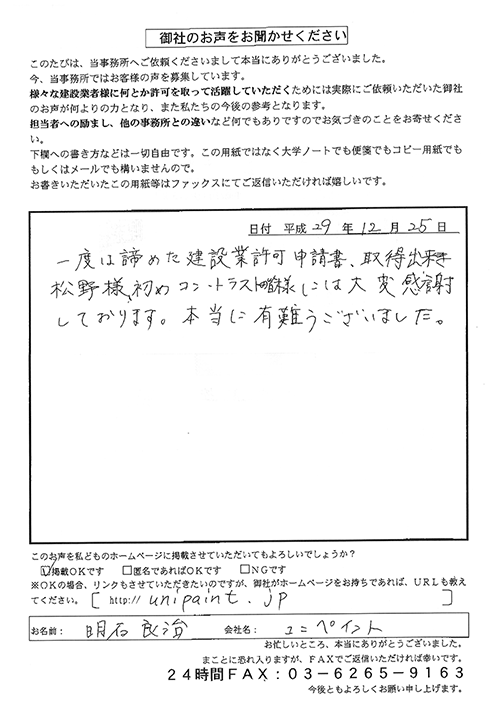 御社のお声をお聞かせください
このたびは、当事務所へご依頼くださいまして本当にありがとうございました。
今、当事務所ではお客様の声を募集しています。
様々な建設業者様に何とか許可を取って活躍していただくためには実際にご依頼いただいた御社
のお声が何よりの力となり、また私たちの今後の参考となります。
担当者への励まし、他の事務所との違いなど何でもありですのでお気づきのことをお寄せくださ
い。
下欄への書き方などは一切自由です。この用紙ではなく大学ノートでも便箋でもコピー用紙でも
もしくはメールでも構いませんので。
お書きいただいたこの用紙等はファックスにてご返信いただければ嬉しいです。
日付 平成 29 年 12 月 25 日
一度は諦めた建設業許可申請書、取得出来
松野様、初めコントラスト
様には大変感謝
しております。本当に有難うございました。
このお声を私どものホームページに掲載させていただいてもよろしいでしょうか？
☑掲載OKです □匿名であればOKです □NGです
※OKの場合、リンクもさせていただきたいのですが、御社がホームページをお持ちであれば、URLも教え
てください。[ http:// unipaint.jp ]
お名前： 明石 良治 会社名： ユニペイント
お忙しいところ、本当にありがとうございました。
まことに恐れ入りますが、FAXでご返信いただければ幸いです。
24時間FAX：03-6265-9163
今後ともよろしくお願い申し上げます。